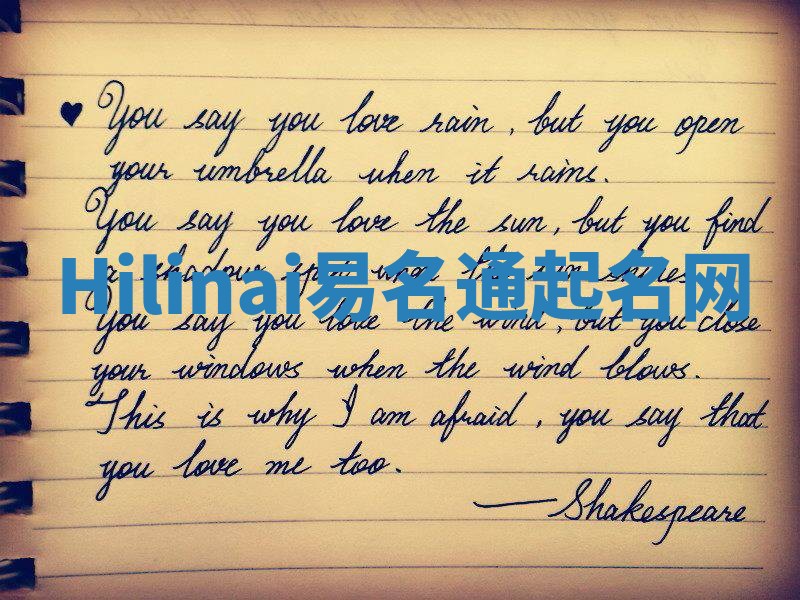 ♥ You say you love rain, but you open
your umbrella when it rains.
You say you love the sun, but you find
a shadow spot when the sun shines.
Hilinai易名通起名网
You say you love the wind, but you close
your windows when the wind blows.
This is why I am afraid, you say that
you love me too.
—Shakespeare